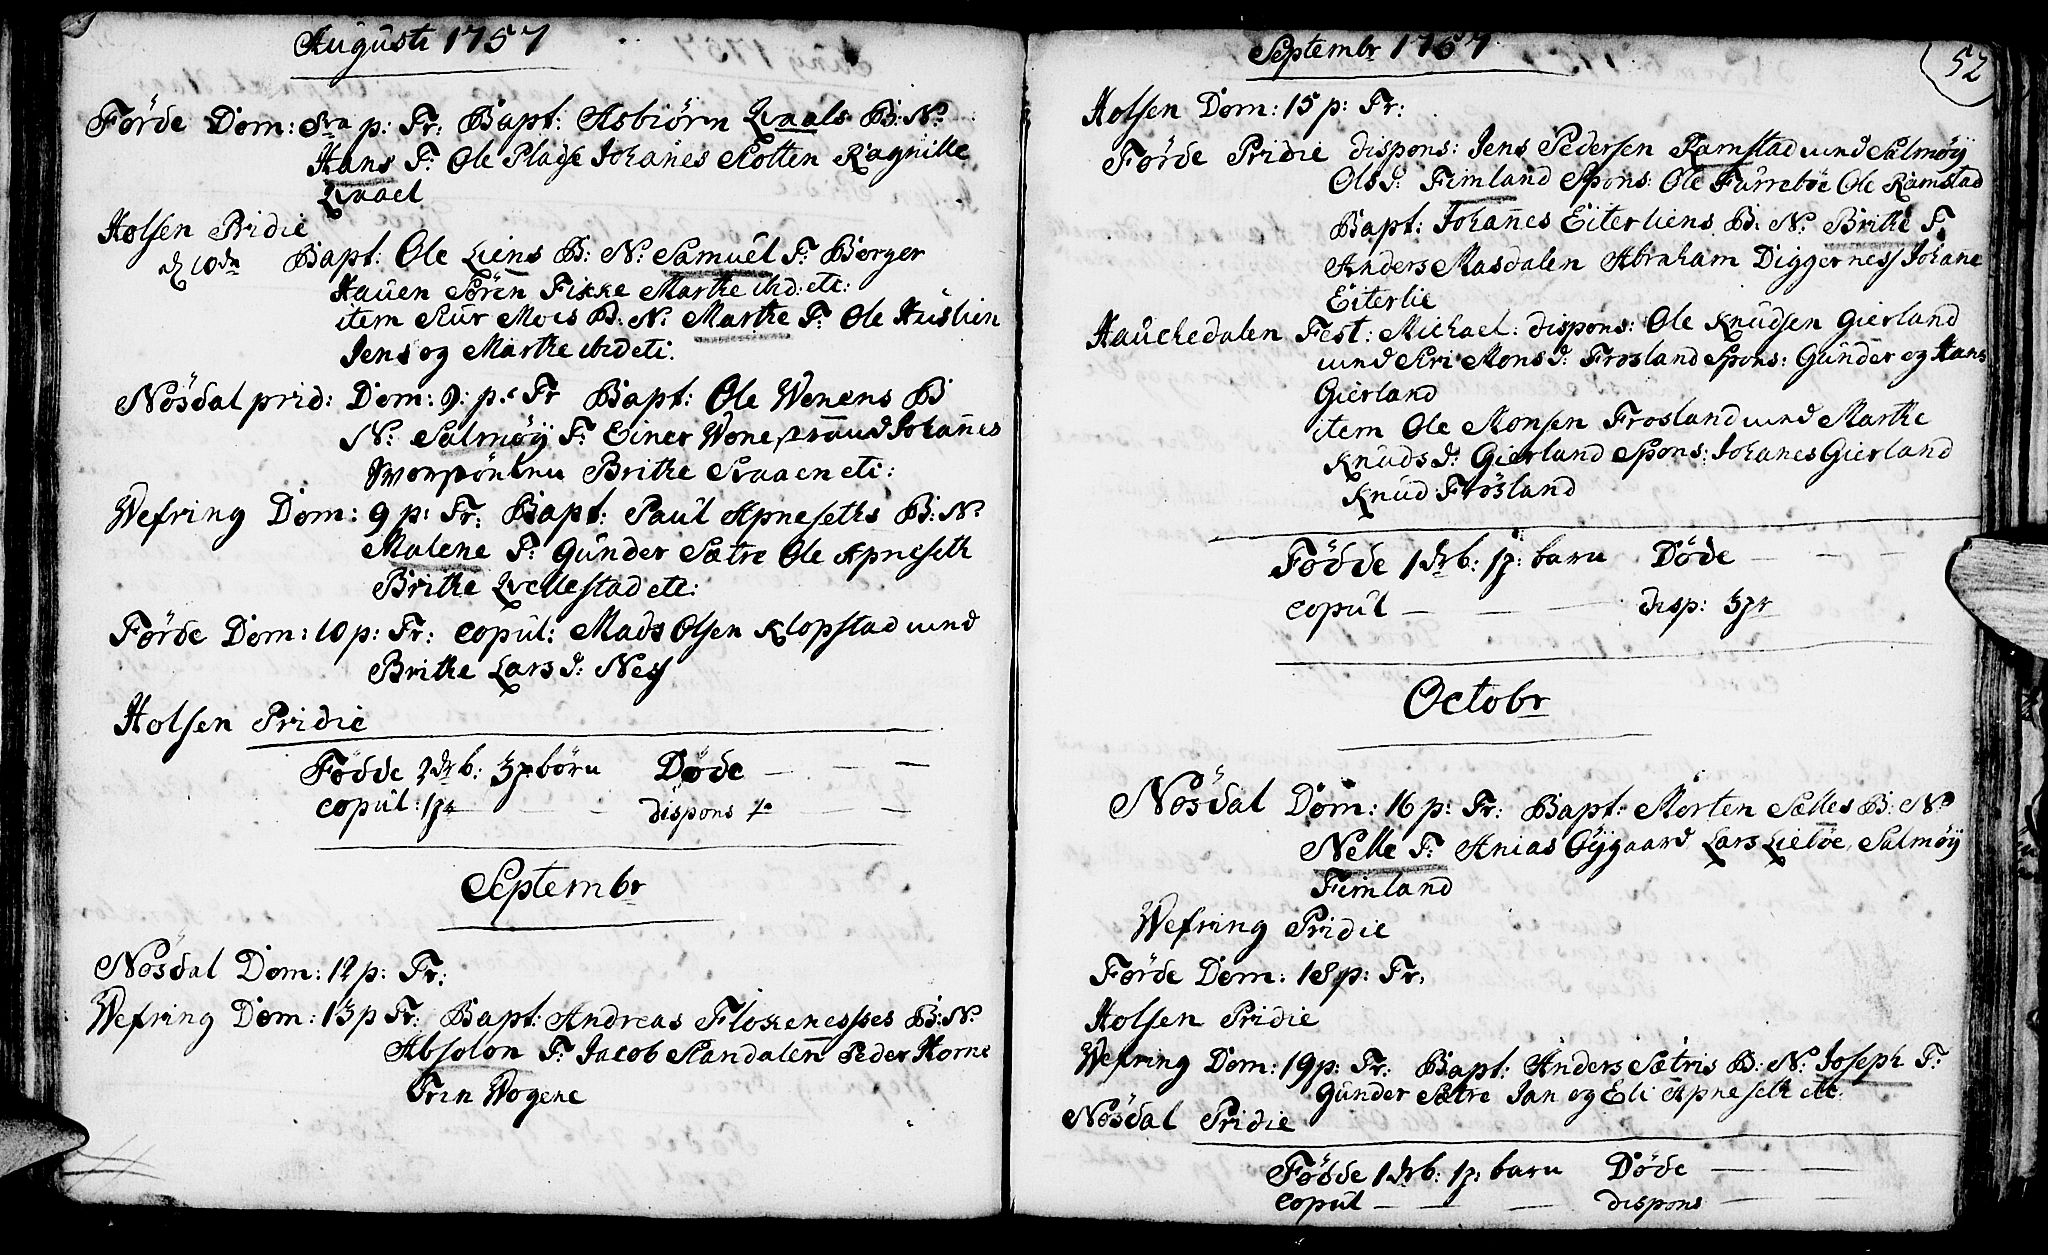 Augusti 1757
Förde Dom: 8va p: Tr: Bapt: Asbiörn Qvaals B: N:
Hans F: Ole Pladse Johañes Slotten Ragnille
Qvael
Holsen Pridie
d 10de Bapt: Ole Liens B: N: Samuel F: Börger
Hauen Sören Fikke Marthe ibd: etc:
item Siur Moes B: N: Marthe F: Ole Huslien
Jens og Marthe ibd etc:
Nösdal prid: Dom: 9: p: Tr Bapt: Ole Wenens B
N: Salmöÿ F: Einer Wone Johañes
Brithe Staaen etc:
Wefring Dom: 9 p: Tr: Bapt: Paul Apneseths B: N:
Malene F: Gunder Sætre Ole Apneseth
Brithe Qvellestad etc:
Förde Dom: 10 p: Tr: copul: Mads Olsen Klopstad und
Brithe Lars d: Nes
Holsen Pridie
Födde 2 drb: 3 p börn Döde — — —
copul: 1 p — — dispons — —
Septembr
Nösdal Dom: 12 p: Tr:
Wefring Dom: 13 p Tr: Bapt: Andreas Flokenesses B: N:
Absolon F: Jacob Standalen Peder Horne
Trin Wogene
Septembr 1757
52
Holsen Dom: 15 p: Tr:
Förde Pridie dispons: Jens Pedersen Ramstad und Salmöÿ
Ols d: Femland Spons: Ole Furreböe Ole Ramstad
Bapt: Johañes Eiterliens B: N: Brithe F:
Anders Masdalen Abraham Diggernes Johane
Eiterlie
Haukedalen Fest: Michael: dispons: Ole Knudsen Gierland
und Siri Mons d: Frosland Spons: Gunder og Hans
Gierland
item Ole Monsen Frosland und Marthe
Knuds d: Gierland Spons: Johanes Gierland
Knud Frösland
Födde 1 drb: 1 p: barn Döde — — —
copul — — — disp: 3 pr
Octobr
Nösdal Dom: 16 p: Tr: Bapt: Morten Sælles B: N:
Nelle F: Anias Öÿgaard Lars Lieböe Salmöÿ
Femland
Wefring Pridie
Förde Dom: 18 p: Tr:
Holsen Pridie
Wefring Dom: 19 p: Tr: Bapt: Anders Sætris B: N: Joseph F:
Gunder Sætre Jan og Eli Apneseth etc:
Nösdal Pridie
Födde 1 drb: 1 p: barn Döde — — —
copul — — — dispons — —